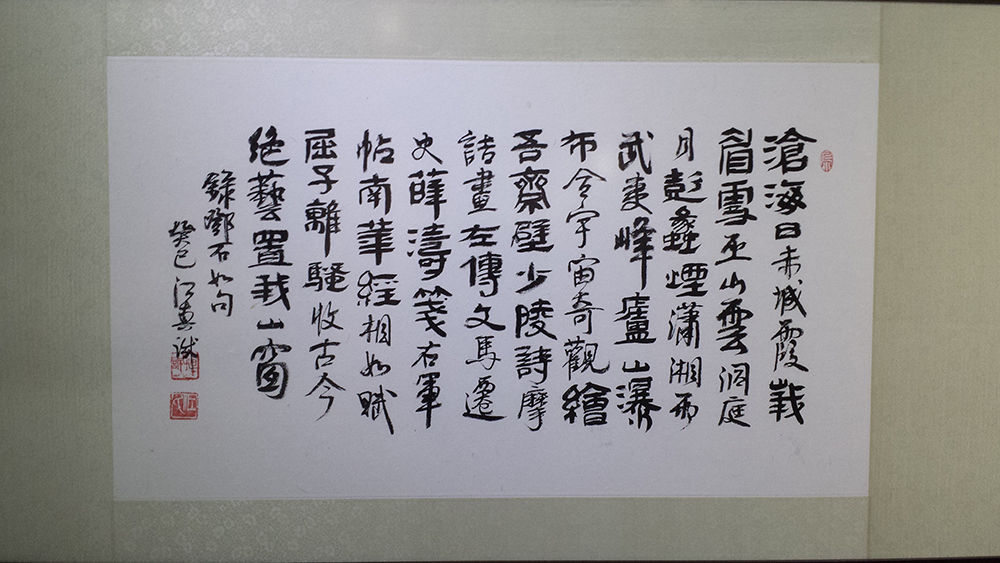 滄海日赤城霞峩
眉雪巫山雲洞庭
月彭蠡煙瀟湘雨
武夷峰廬山瀑
布合宇宙奇觀繪
吾齋壁少陵詩摩
詰畫左傳文馬遷
史薛濤箋右軍
帖南華經相如賦
屈子離騷收古今
絶藝置我山窗
錄鄧石如句
癸巳江